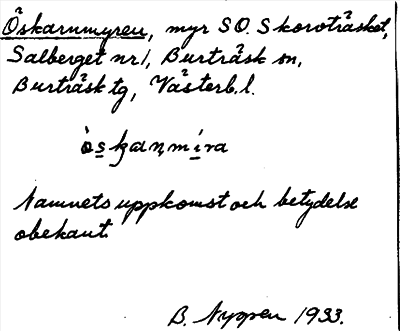 Öskarnmyren, myr SO. Skoroträsket,
Salberget nr 1, Burträsk sn,
Burträsk tg, Västerb. l.
òskaṇmíra
Namnets uppkomst och betydelse
obekant.
B. Nygren 1933.